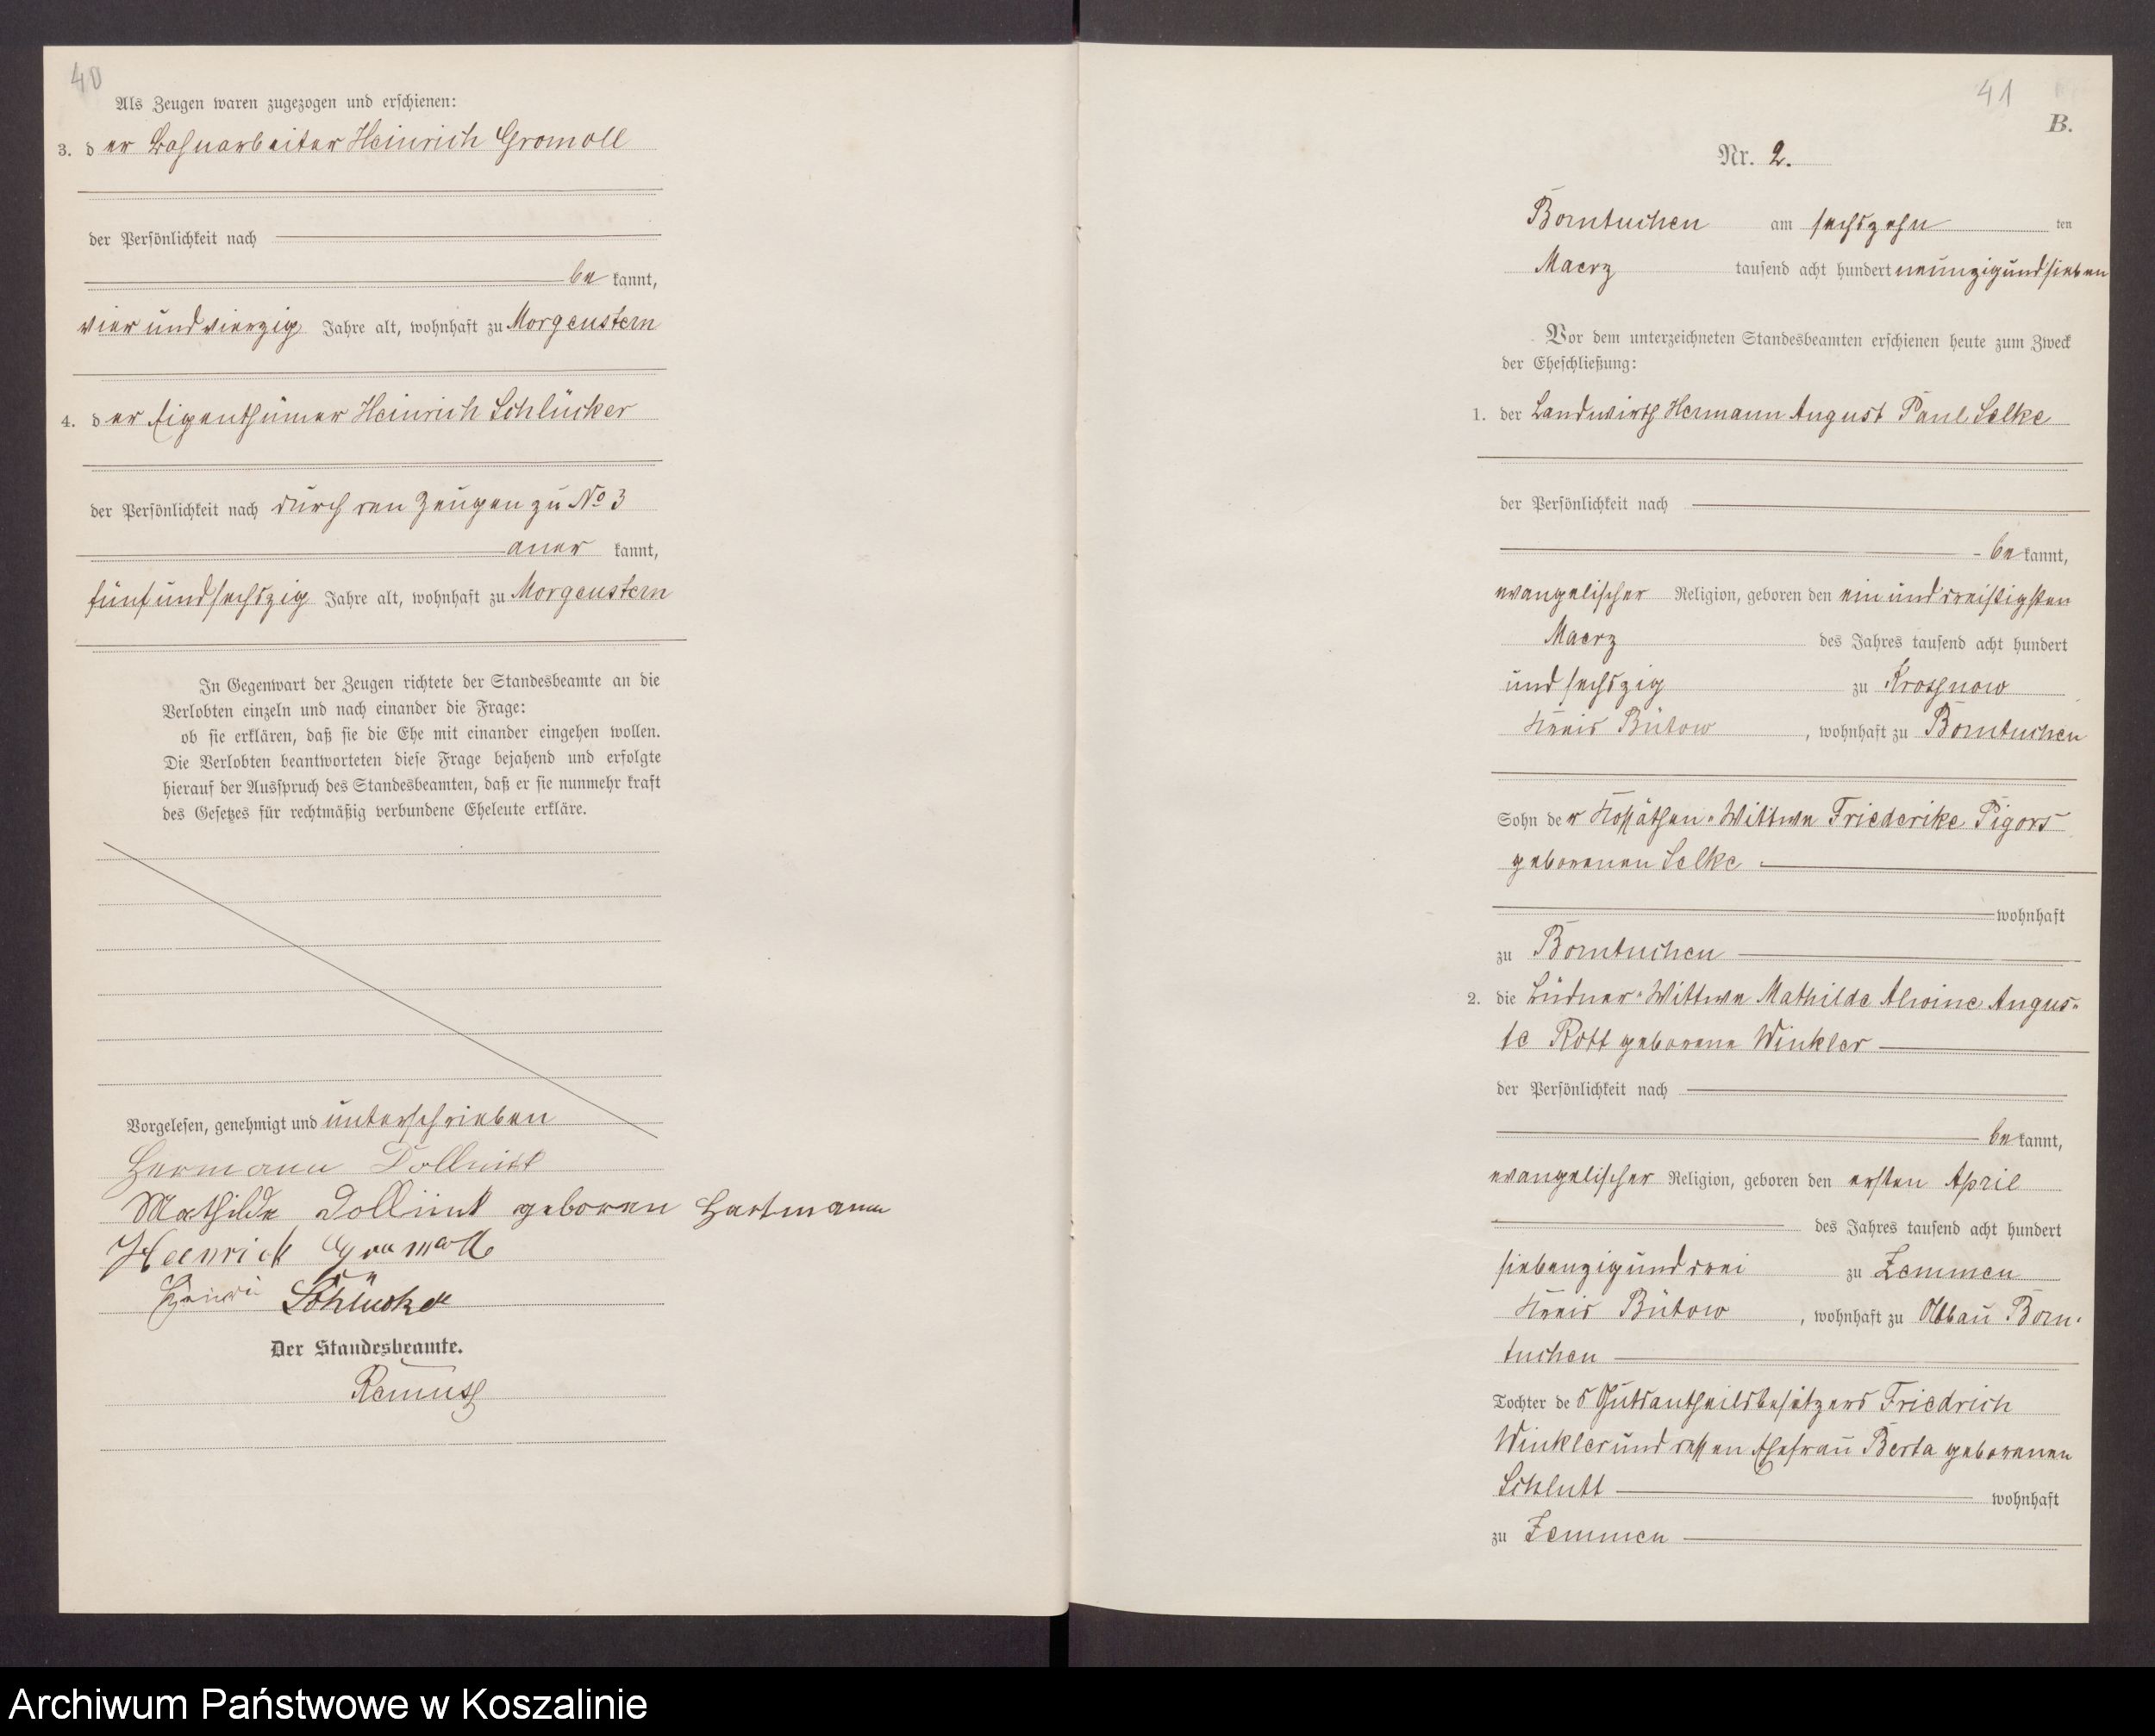 40
Als Zeugen waren zugezogen und erschienen:
3. der Bahnarbeiter Heinrich Gromoll
der Persönlichkeit nach
bekannt,
vier und vierzig Jahre alt, wohnhaft zu Morgenstern
4. der Eigenthümer Heinrich Schlücker
der Persönlichkeit nach durch den Zeugen zu No 3
anerkannt,
fünf und sechszig Jahre alt, wohnhaft zu Morgenstern
In Gegenwart der Zeugen richtete der Standesbeamte an die
Verlobten einzeln und nach einander die Frage:
ob sie erklären, daß sie die Ehe mit einander eingehen wollen.
Die Verlobten beantworteten diese Frage bejahend und erfolgte
hierauf der Ausspruch des Standesbeamten, daß er sie nunmehr kraft
des Gesetzes für rechtmäßig verbundene Eheleute erkläre.
Vorgelesen, genehmigt und unterschrieben
Hermann
Mathilde geboren Hartmann
Heinrich Gromoll
Schlücker
Der Standesbeamte.
Remus
41
B.
Nr. 2.
Borntuchen am sechszehnten
Maerz tausend acht hundert neunzig und sieben
Vor dem unterzeichneten Standesbeamten erschienen heute zum Zweck
der Eheschließung:
1. der Landwirth Hermann August Paul Selke
der Persönlichkeit nach
bekannt,
evangelischer Religion, geboren den ein und dreißigsten
Maerz des Jahres tausend acht hundert
und sechszig zu Krossnow
Kreis Bütow, wohnhaft zu Borntuchen
Sohn der Kossäthen-Wittwe Friederike Pigors
geborenen Selke
wohnhaft
zu Borntuchen
2. die Büdner-Wittwe Mathilde Alwine Augus-
te Rott geborene Winkler
der Persönlichkeit nach
bekannt,
evangelischer Religion, geboren den ersten April
des Jahres tausend acht hundert
siebenzig und drei zu Zemmen
Kreis Bütow, wohnhaft zu Abbau Born-
tuchen
Tochter des Gutsantheilsbesitzers Friedrich
Winkler und dessen Ehefrau Berta geborenen
Schlutt wohnhaft
zu Zemmen
Archiwum Państwowe w Koszalinie